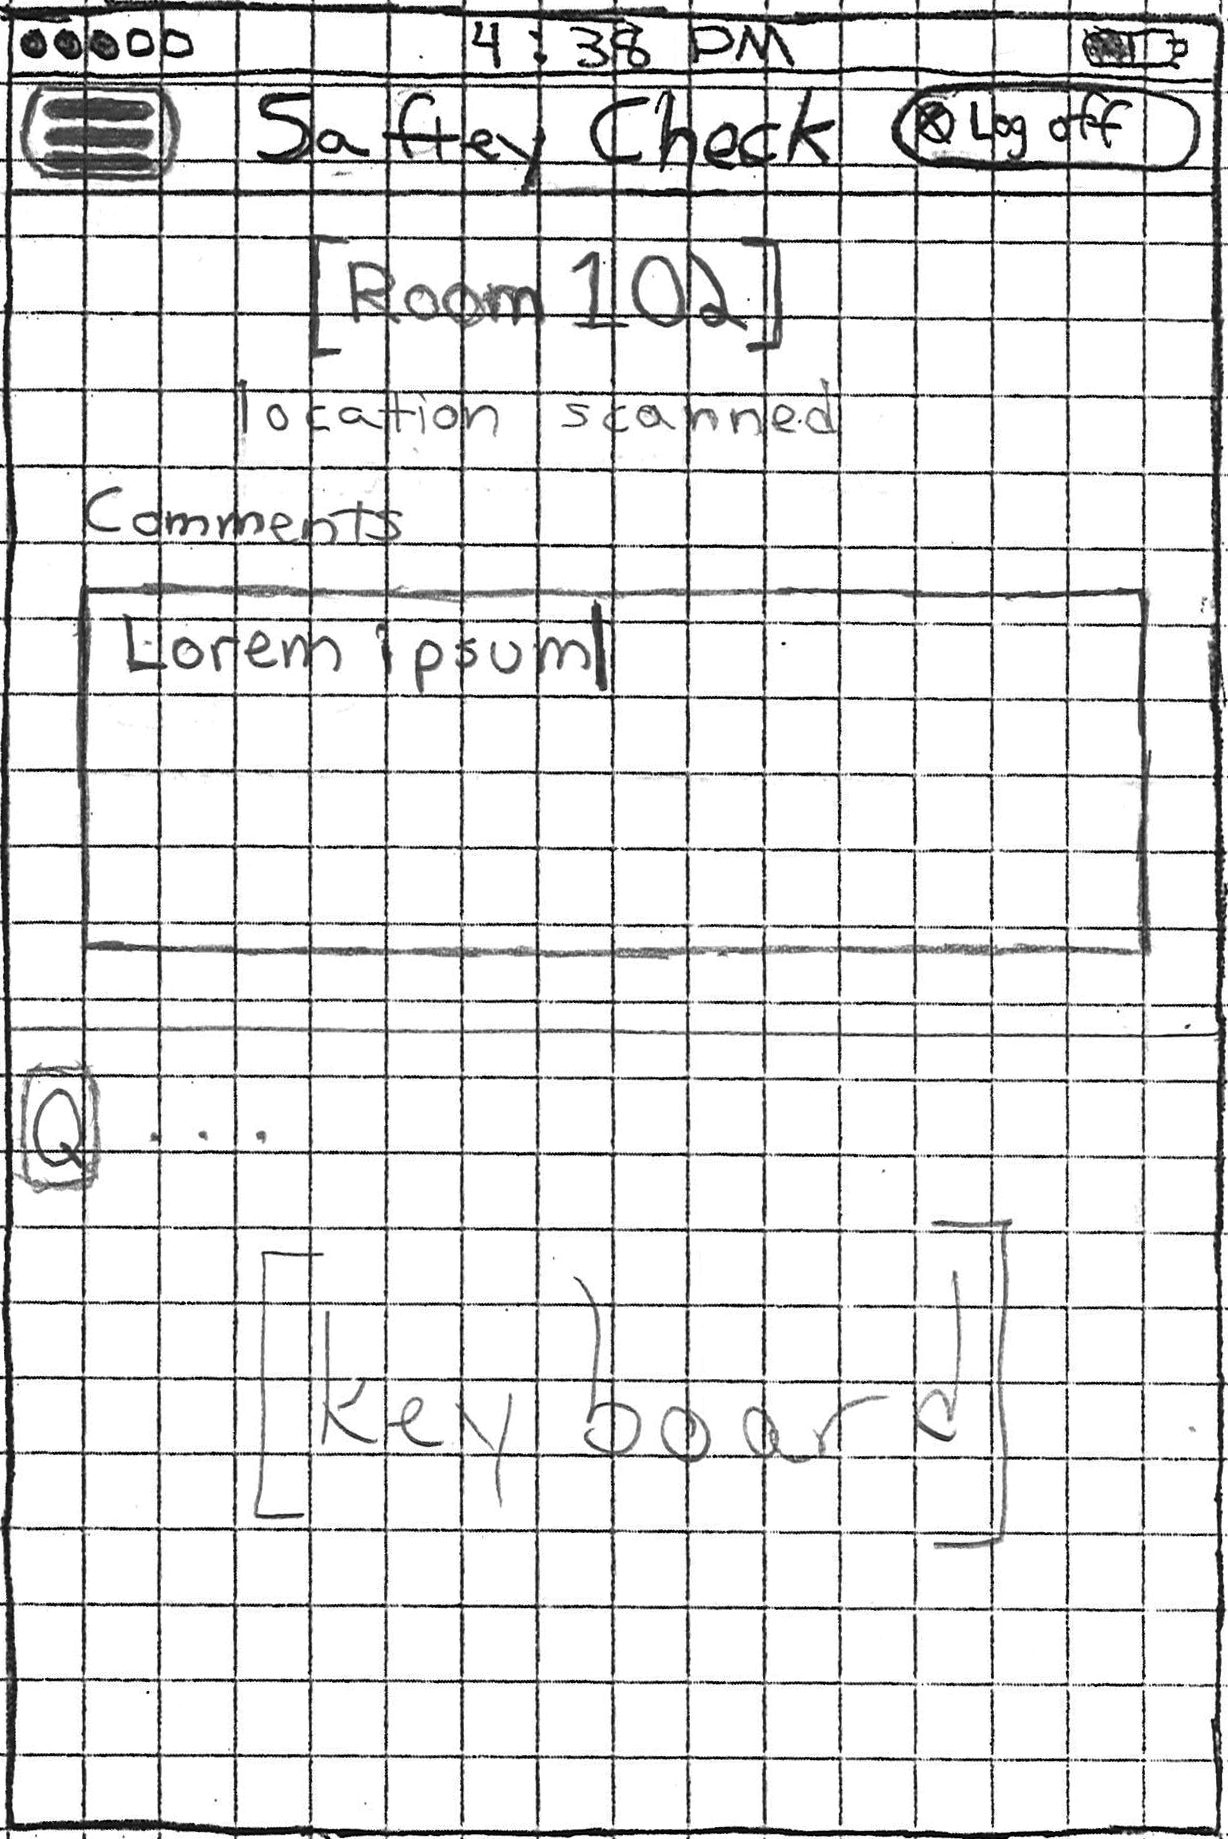 4:38 PM
Saftey Check
Log off
[Room 102]
location scanned
Comments
Lorem ipsum
Q . . .
[keyboard]